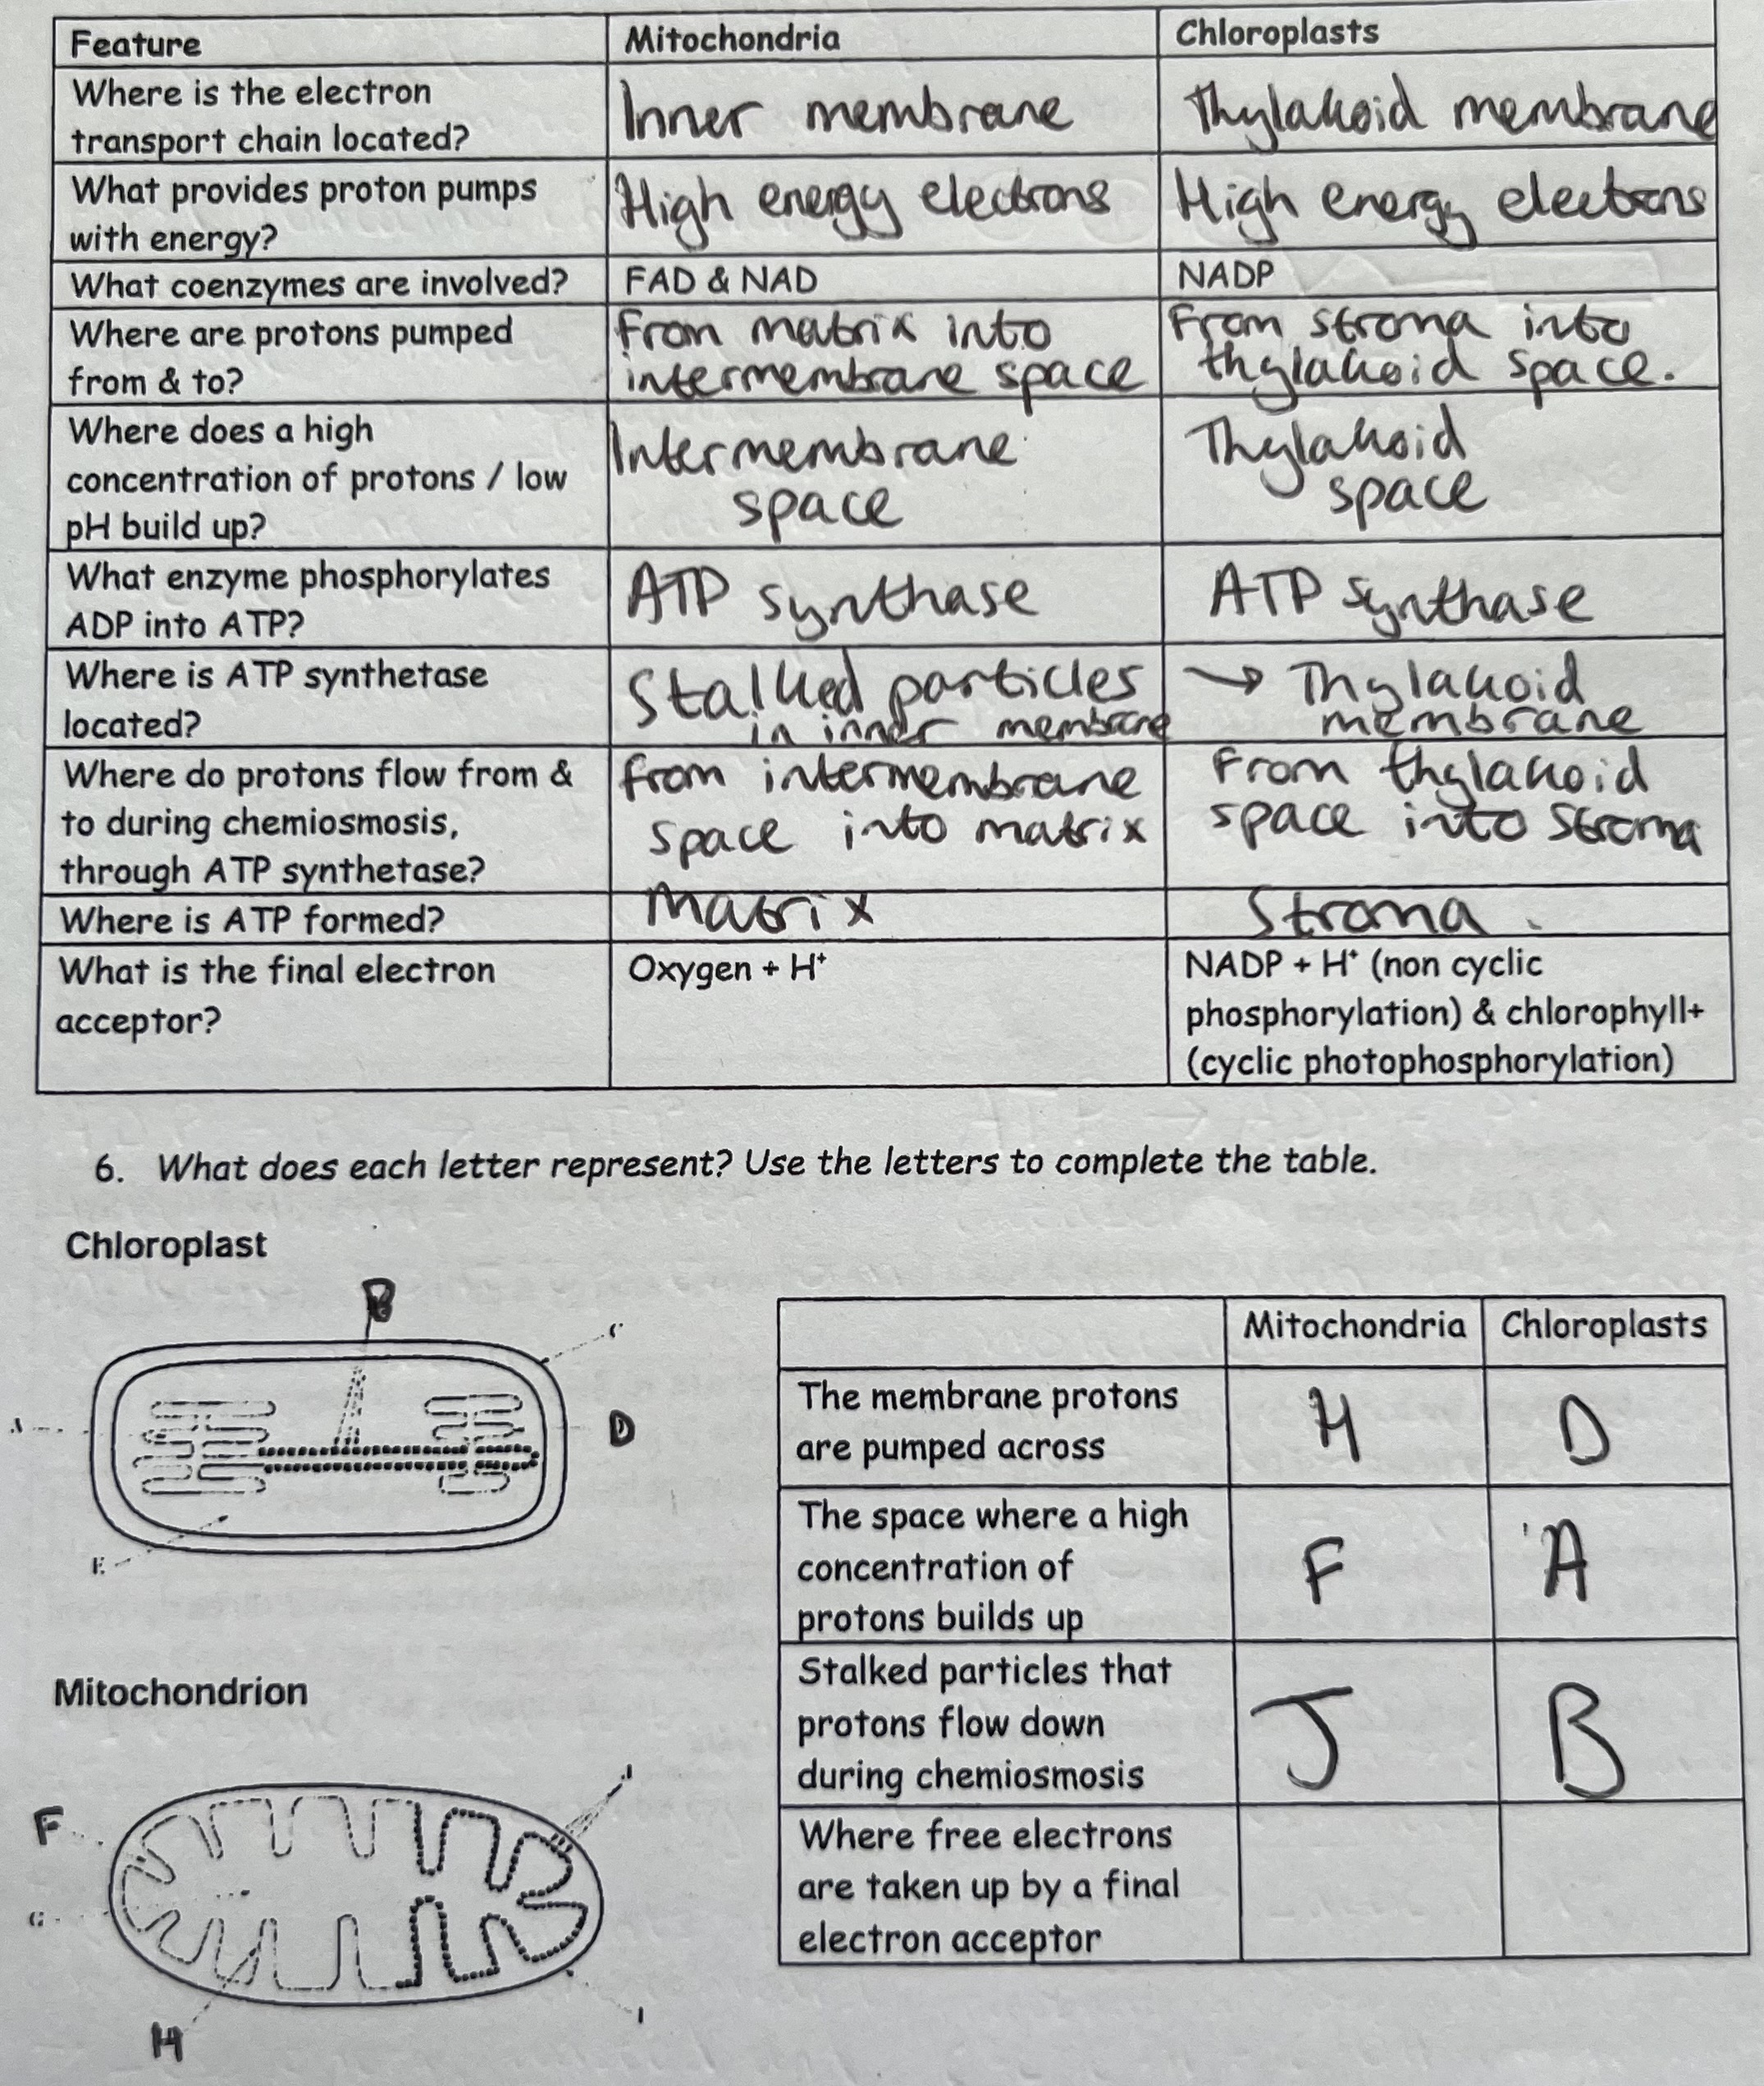 Feature Mitochondria Chloroplasts
Where is the electron
transport chain located?
Inner membrane
Thylakoid membrane
What provides proton pumps
with energy?
High energy electrons
High energy electrons
What coenzymes are involved? FAD & NAD NADP
Where are protons pumped
from & to?
From matrix into
intermembrane space
From stroma into
thylakoid space.
Where does a high
concentration of protons / low
pH build up?
Intermembrane
space
Thylakoid
space
What enzyme phosphorylates
ADP into ATP?
ATP synthase
ATP synthase
Where is ATP synthetase
located?
Stalked particles
in inner membrane
→ Thylakoid
membrane
Where do protons flow from &
to during chemiosmosis,
through ATP synthetase?
from intermembrane
space into matrix
From thylakoid
space into stroma
Where is ATP formed? Matrix Stroma.
What is the final electron
acceptor?
Oxygen + H⁺
NADP + H⁺ (non cyclic
phosphorylation) & chlorophyll+
(cyclic photophosphorylation)
6. What does each letter represent? Use the letters to complete the table.
Chloroplast
B
C
A
D
E
Mitochondrion
J
F
G
H
I
Mitochondria Chloroplasts
The membrane protons
are pumped across
H D
The space where a high
concentration of
protons builds up
F A
Stalked particles that
protons flow down
during chemiosmosis
J B
Where free electrons
are taken up by a final
electron acceptor